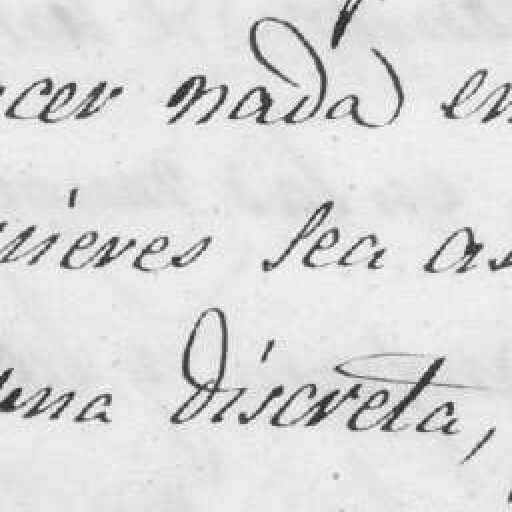 cer nada en
ieres sea as
una discreta,